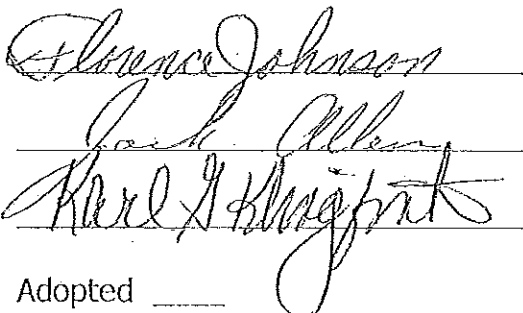 Florence Johnson
Jack Allen
Karl G
Adopted ____